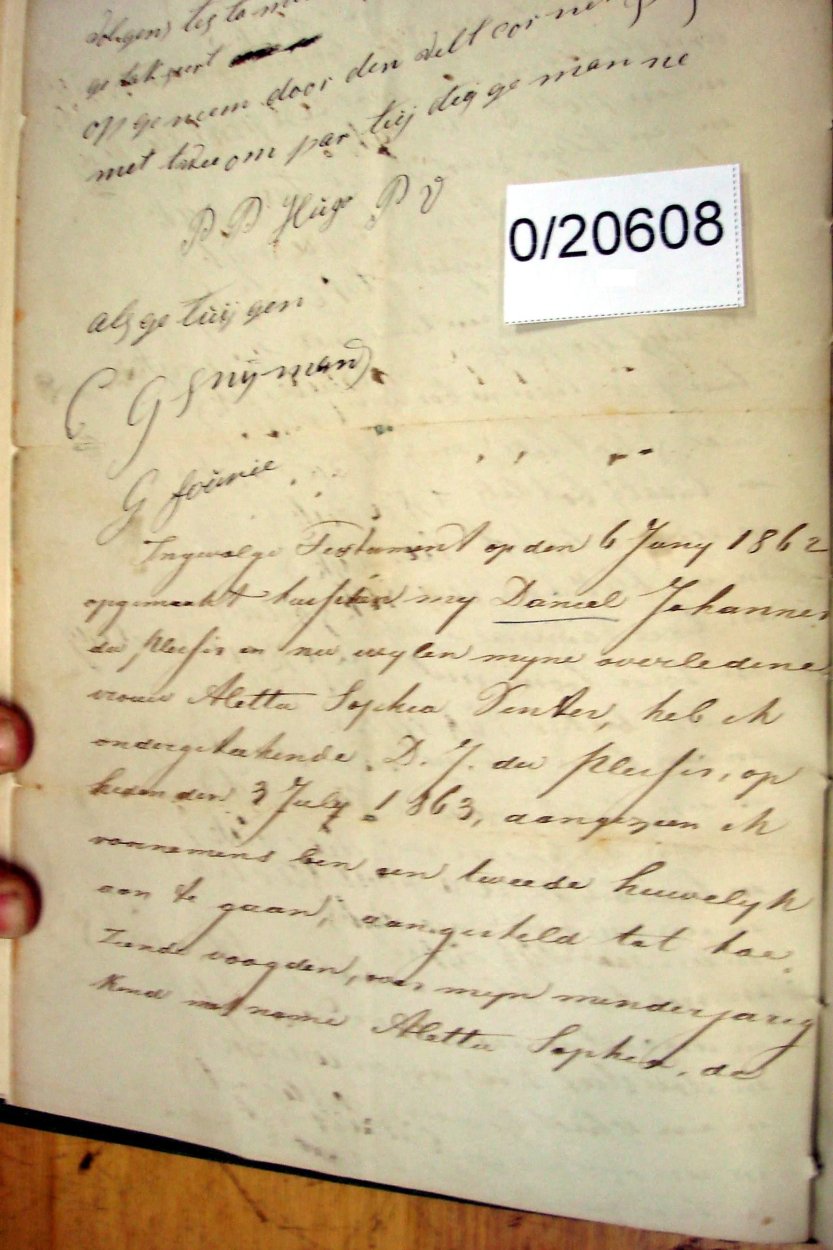 volgens testament
getakseert
op geneem door den velt cornet
met twee om par tuij deg ge man ne
P P Hugo P V
0/20608
als ge tuij gen
C G Snijman
G founie
Ingevolge Testament op den 6 Juny 1862
opgemaakt tusschen my Daniel Johannes
du Plessis en nu wylen myne overledene
vrouw Aletta Sophia Venter, heb ik
ondergetekende D. J. du Plessis, op
heden den 3 July 1863, aangezien ik
voornemens ben een tweede huwelyk
aan te gaan, aangesteld tot toe
Ziende voogden, over mijn minderjarig
Kind met name Aletta Sophia, de